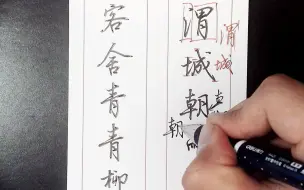 渭城朝
渭城
朝
客舍青青柳